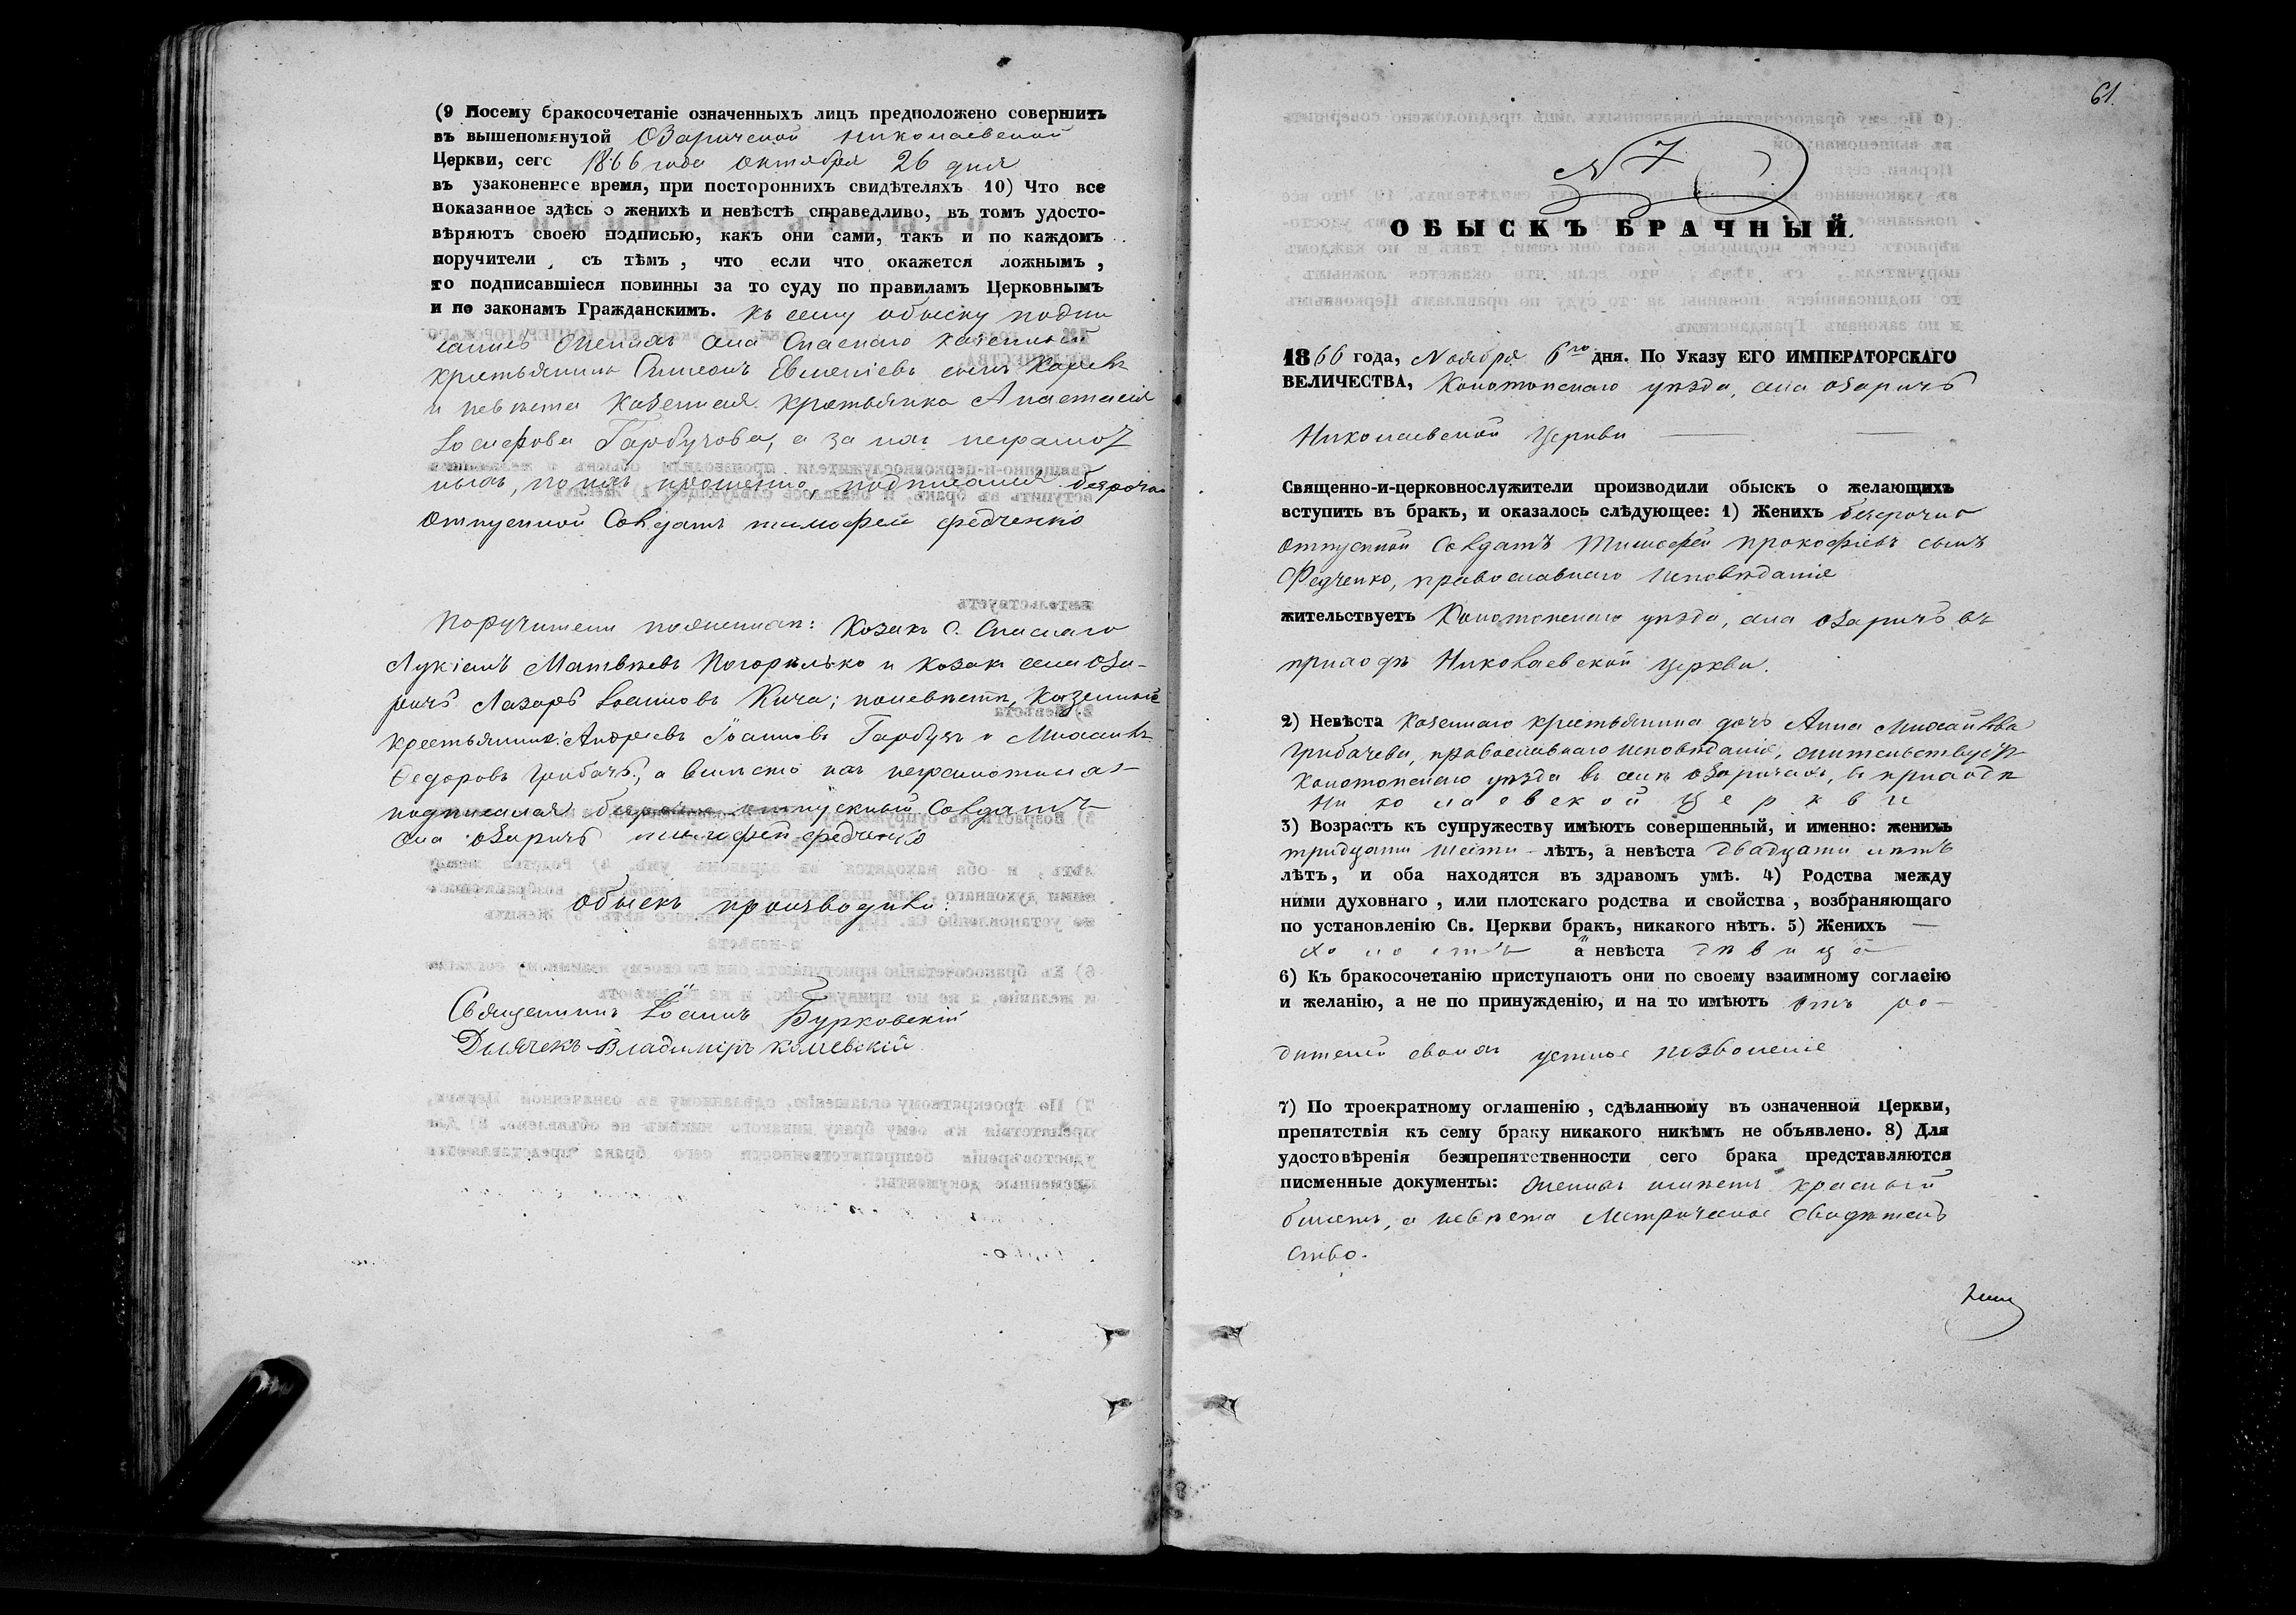 (9 Посему бракосочетаніе означенныхъ лицъ предположено совершить
въ вышепомянутой Озаричской Николаевской
Церкви, сего 1866 года Октября 26 дня
въ узаконенное время, при постороннихъ свидѣтеляхъ 10) Что все
показанное здѣсь о женихѣ и невѣстѣ справедливо, въ томъ удосто-
вѣряютъ своею подписью, какъ они сами, такъ и по каждомъ
поручители, съ тѣмъ, что если что окажется ложнымъ,
то подписавшіеся повинны за то суду по правиламъ Церковнымъ
и по законамъ Гражданскимъ. Къ сему обыску подпи
сались Женихъ села Спаскаго казенный
крестьянинъ Симеонъ Евменіевъ сынъ
и невѣста казенная крстьянка Анастасія
Іосифова Гарбузова, а за них неграмот
ныхъ, по ихъ прошенію, подписался безрочно
отпускной Солдатъ тимофей федченко
Поручители по женихѣ: Козакъ С. Спаскаго
Лукіанъ Матвѣевъ Погорѣлько и козакъ села Оза-
ричъ Лазарь Іоанновъ Кича; по невѣстѣ, Казенные
крестьянины: Андреевъ Іоанновъ Гарбузъ и Михаилъ
Ѳедоровъ Грибачъ, а вмѣсто ихъ неграмотныхъ
подписался отпускный Солдатъ
села Озаричъ тимофей федченко
Обыскъ производили:
Священникъ Іоаннъ Бурковскій
Дьячекъ Владиміръ
61.
N 7
ОБЫСКЪ БРАЧНЫЙ.
1866 года, Ноября 6го дня. По Указу ЕГО ИМПЕРАТОРСКАГО
ВЕЛИЧЕСТВА, Конотопскаго уѣзда, села Озаричъ
Николаевской Церкви
Священно-и-церковнослужители производили обыскъ о желающихъ
вступить въ бракъ, и оказалось слѣдующее: 1) Женихъ безсрочно
Отпускной Солдатъ Тимофей Прокофіевъ сынъ
Федченко, православнаго исповѣданія
жительствуетъ Конотопскаго уѣзда, села Озаричъ въ
приходѣ Николаевской церкви.
2) Невѣста Казеннаго крестьянина дочь Анна Михайлова
Грибачева, православнаго исповѣданія, жительствуетъ
Конотопскаго уѣзда въ селѣ Озаричахъ, въ приходѣ
Николаевской Церкви
3) Возрастъ къ супружеству имѣютъ совершенный, и именно: женихъ
тридцати шести лѣтъ, а невѣста двадцати
лѣтъ, и оба находятся въ здравомъ умѣ. 4) Родства между
ними духовнаго, или плотскаго родства и свойства, возбраняющаго
по установленію Св. Церкви бракъ, никакого нѣтъ. 5) Женихъ
холостъ а невѣста дѣвица
6) Къ бракосочетанію приступаютъ они по своему взаимному согласію
и желанію, а не по принужденію, и на то имѣютъ отъ ро-
дителей своихъ устное позволеніе
7) По троекратному оглашенію, сдѣланному въ означенной Церкви,
препятствія къ сему браку никакого никѣмъ не объявлено. 8) Для
удостовѣренія безпрепятственности сего брака представляются
писменные документы: Женихъ имѣетъ красный
билетъ, а невѣста Метрическое свидѣтель
ство.